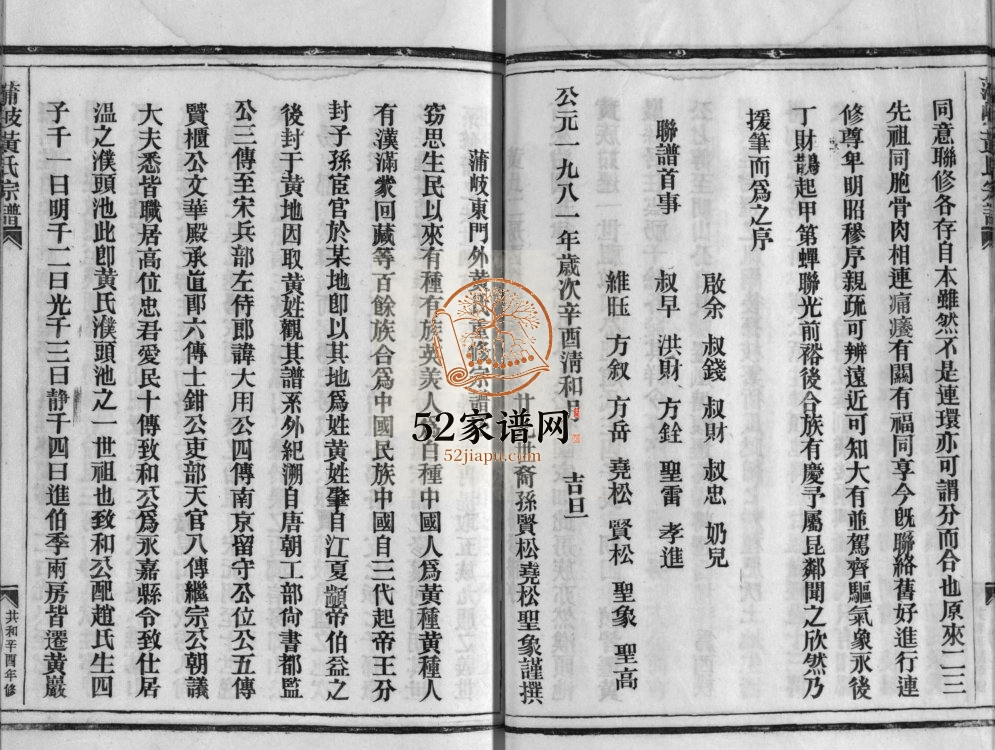 同意聯修各存自本雖然不是連環亦可謂分而合也原來二三
先祖同胞骨肉相連痛癢有關有福同享今既聯絡舊好進行連
修尊卑明昭穆序親疏可辨遠近可知大有並駕齊驅氣象永後
丁財鵲起甲第蟬聯光前裕後合族有慶予屬昆鄰聞之欣然乃
援筆而爲之序
啟余 叔錢 叔財 叔忠 奶兒
聯譜首事 叔早 洪財 方銓 聖雷 孝進
維旺 方叙 方岳 堯松 賢松 聖象 聖高
公元一九八一年歲次辛酉清和月 吉旦
廿九世裔孫賢松堯松聖象謹撰
蒲岐東門外黄氏重修宗譜
窃思生民以來有種有族英美人 白種中國人爲黄種黄種人
有漢滿蒙回藏等百餘族合爲中國民族中國自三代起帝王分
封子孫宦官於某地卽以其地爲姓黄姓肇自江夏顓帝伯益之
後封于黄地因取黄姓觀其譜系外紀溯自唐朝工部尚書都監
公三傳至宋兵部左侍郎諱大用公四傳南京留守公位公五傳
賢櫃公文華殿承直郎六傳士鉗公吏部天官八傳繼宗公朝議
大夫悉皆職居高位忠君愛民十傳致和公爲永嘉縣令致仕居
溫之濮頭池此卽黄氏濮頭池之一世祖也致和公配趙氏生四
子千一曰明千二曰光千三曰靜千四曰進伯季兩房皆遷黄巖
蒲岐黃氏宗譜
共和辛酉年修
52家谱网
52jiapu.com